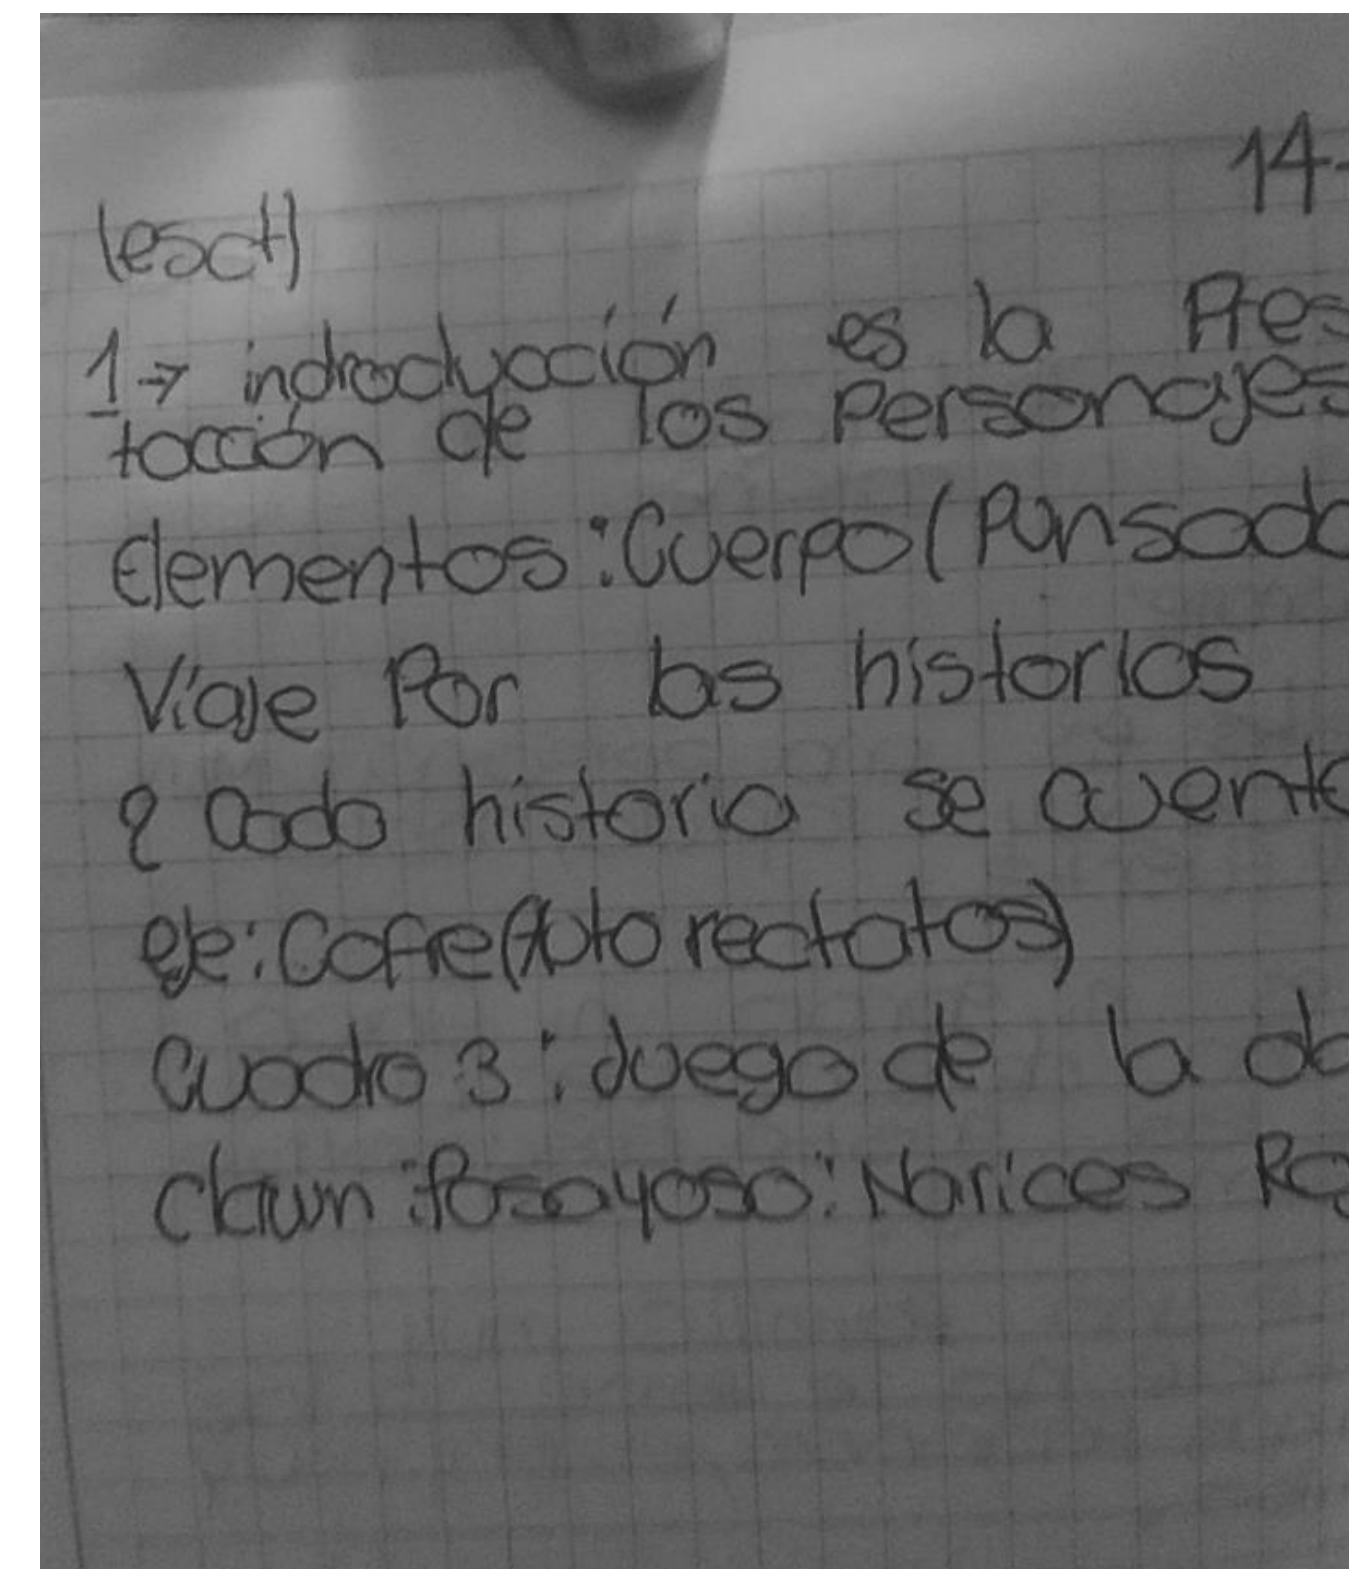 14-
1→ indroduycción es la Pres
tacción de los Personajes
Elementos: Cuerpo (Pansado
Viaje Por las historias
2 Cada historia se cuenta
eje: Cofre (Auto rectatos)
Cuadro 3: Juego de la ob
Clawn: Posayoso: Narices Ro